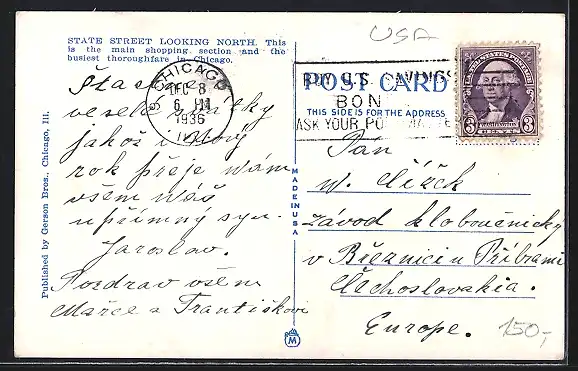 USA
STATE STREET LOOKING NORTH. This
is the main shopping section and the
busiest thoroughfare in Chicago.
Šťastné a
veselé svátky
jakož i nový
rok přeje vám
všem váš
upřímný syn.
Jaroslav.
Pozdrav všem
Mařce a Františkovi
Published by Gerson Bros., Chicago, Ill.
MADE IN USA
M
CHICAGO
DEC 8
6 PM
1936
ILL.
BUY U.S. SAVINGS
BON
ASK YOUR
POST CARD
THIS SIDE IS FOR THE ADDRESS
UNITED STATES POSTAGE
3 WASHINGTON 3
Pan
závod kloboučnický
v Březnici u Příbrami
Čechoslovakia.
Europe.
150,-